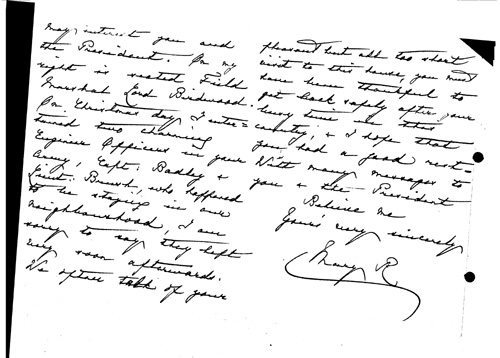 may interest you and
the President. On my
right is seated Field
Marshal Lord Birdwood.
On Christmas day I enter=
tained two charming
Engineer Officers in your
Army, Capt: Badley &
Lieut: Brush, who happened
to be staying in our
neighbourhood, I am
sorry to say they left
very soon afterwards.
We often talk of your
pleasant but all too short
visit to this house, you must
have been thankful to
get back safely after your
busy time in this
country, & I hope that
you had a good rest =
With many messages to
you & the President
Believe me
Yours very sincerely
Mary R